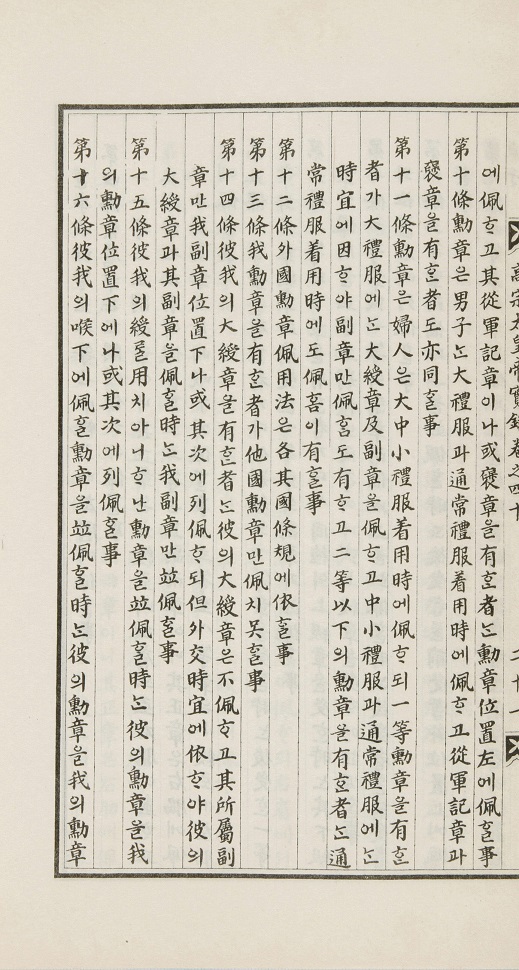 高宗太皇帝實錄卷之四十 二十一
에佩ᄒᆞ고其從軍記章이나或褒章을有ᄒᆞᆫ者ᄂᆞᆫ勳章位置左에佩ᄒᆞᆯ事
第十條勳章은男子ᄂᆞᆫ大禮服과通常禮服着用時에佩ᄒᆞ고從軍記章과
褒章을有ᄒᆞᆫ者도亦同ᄒᆞᆯ事
第十一條勳章은婦人은大中小禮服着用時에佩ᄒᆞ되一等勳章을有ᄒᆞᆫ
者가大禮服에ᄂᆞᆫ大綬章及副章을佩ᄒᆞ고中小禮服과通常禮服에ᄂᆞᆫ
時宜에因ᄒᆞ야副章만佩ᄒᆞᆷ도有ᄒᆞ고二等以下의勳章을有ᄒᆞᆫ者ᄂᆞᆫ通
常禮服着用時에도佩ᄒᆞᆷ이有ᄒᆞᆯ事
第十二條外國勳章佩用法은各其國條規에依ᄒᆞᆯ事
第十三條我勳章을有ᄒᆞᆫ者가他國勳章만佩치못ᄒᆞᆯ事
第十四條彼我의大綬章을有ᄒᆞᆫ者ᄂᆞᆫ彼의大綬章은不佩ᄒᆞ고其所屬副
章만我副章位置下나或其次에列佩ᄒᆞ되但外交時宜에依ᄒᆞ야彼의
大綬章과其副章을佩ᄒᆞᆯ時ᄂᆞᆫ我副章만竝佩ᄒᆞᆯ事
第十五條彼我의綬ᄅᆞᆯ用치아니ᄒᆞ난勳章을竝佩ᄒᆞᆯ時ᄂᆞᆫ彼의勳章을我
의勳章位置下에나或其次에列佩ᄒᆞᆯ事
第十六條彼我의喉下에佩ᄒᆞᆯ勳章을竝佩ᄒᆞᆯ時ᄂᆞᆫ彼의勳章을我의勳章